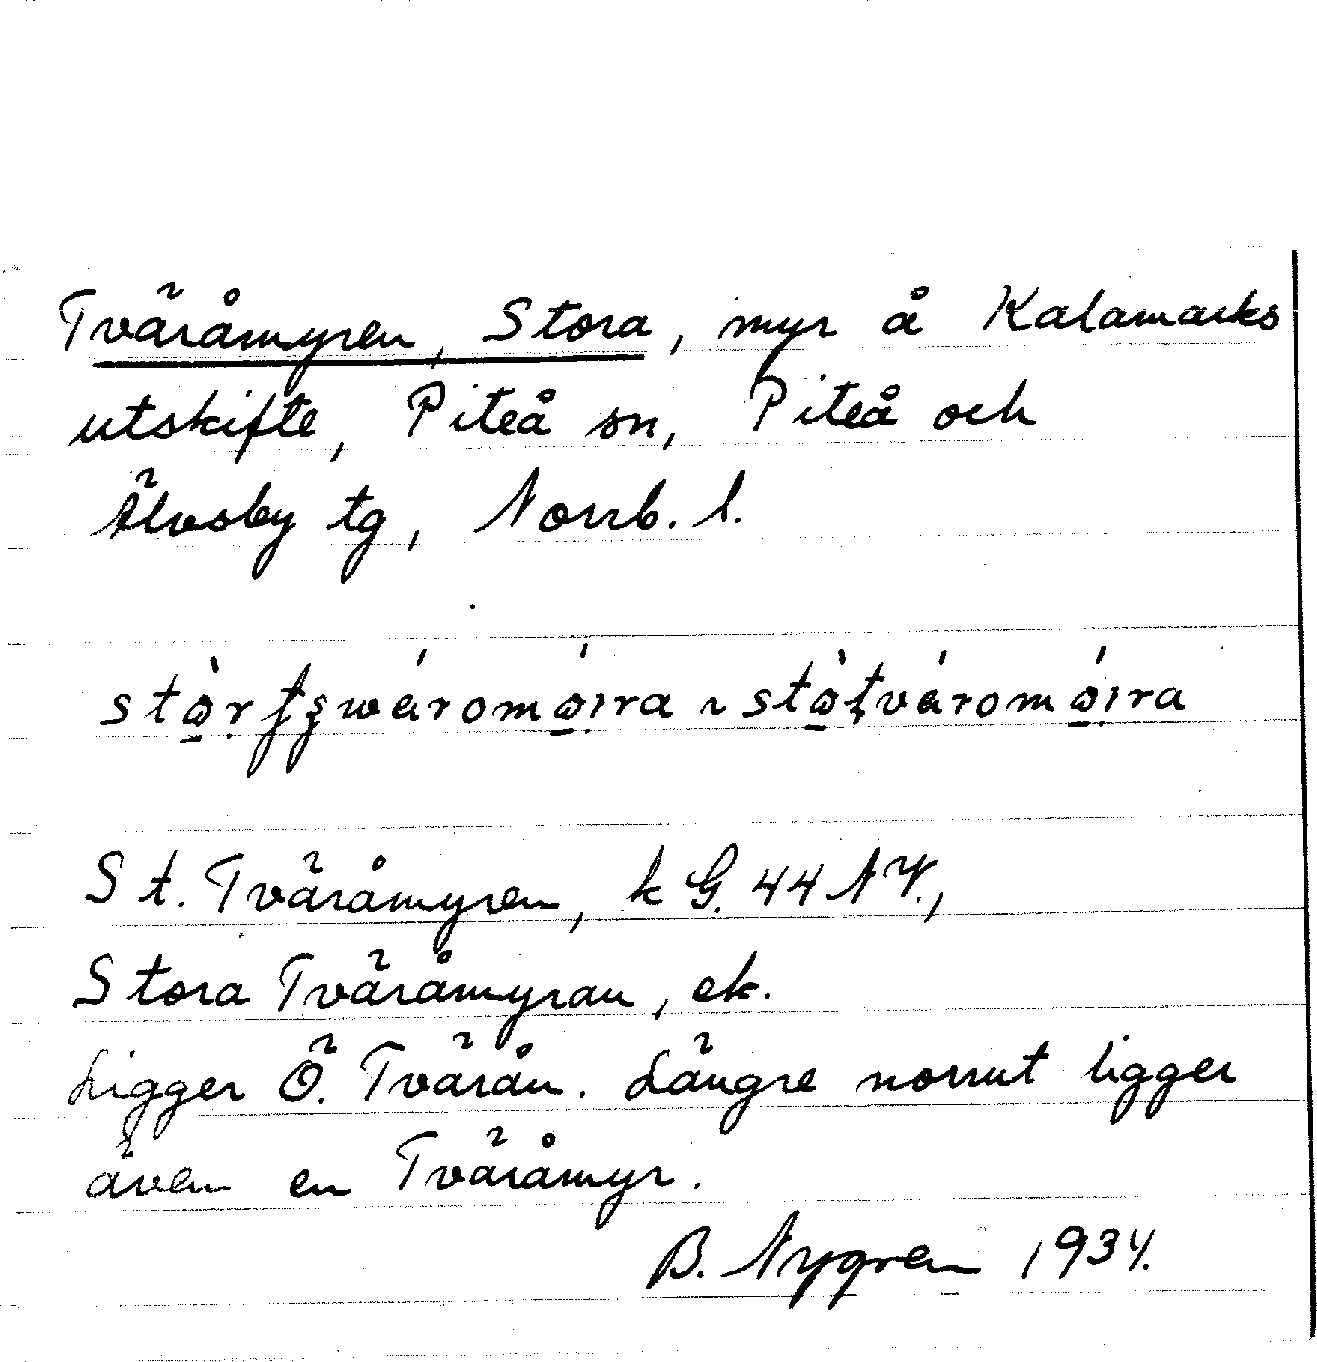 Tväråmyren, Stora, myr å Kalamarks
utskifte, Piteå sn, Piteå och
Älvsby tg, Norrb. l.
St. Tväråmyren, k G. 44 NV.,
Stora Tväråmyran, ek.
Ligger Ö. Tvärån. Längre norrut ligger
även en Tväråmyr.
B. Nygren 1934.